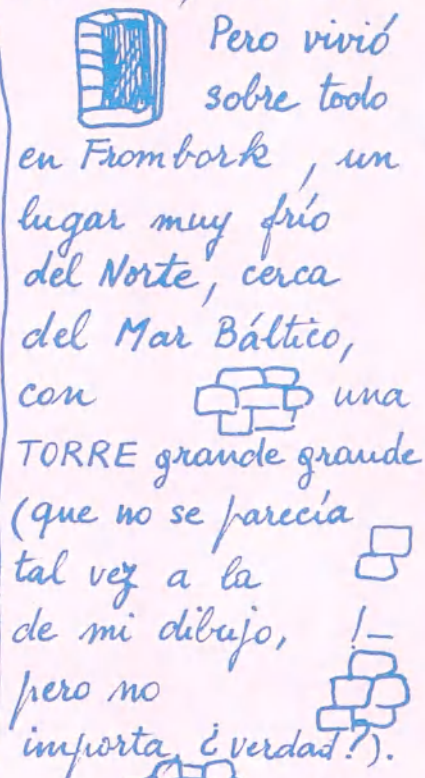 Pero vivió
sobre todo
en Frombork, un
lugar muy frío
del Norte, cerca
del Mar Báltico,
con una
TORRE grande grande
(que no se parecía
tal vez a la
de mi dibujo,
pero no
importa, ¿verdad?).